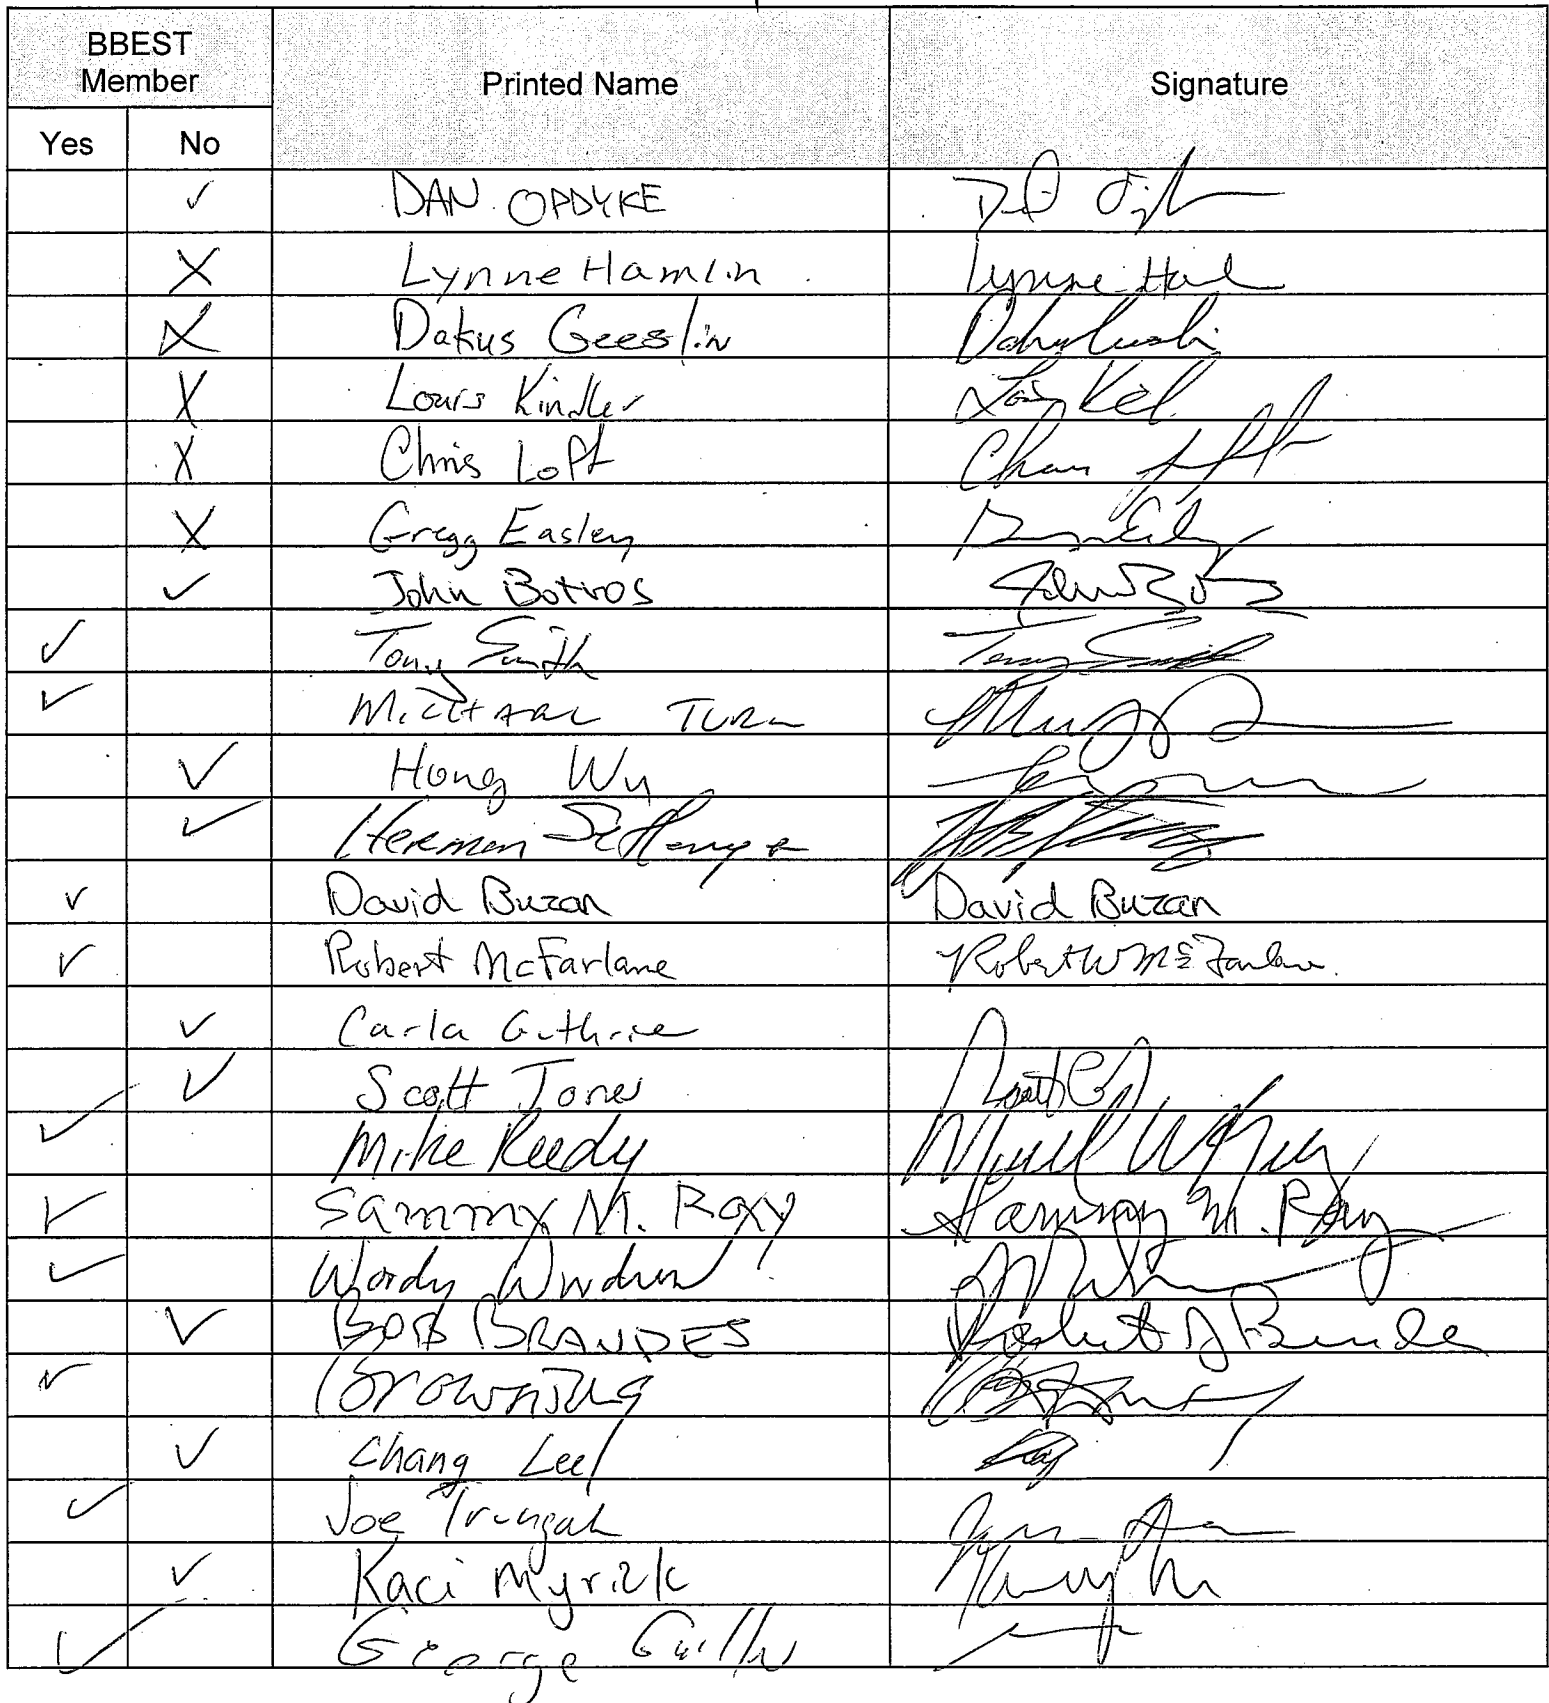 BBEST
Member
Printed Name
Signature
Yes No
✓ DAN OPDYKE
X Lynne Hamlin Lynne Ham
X Dakus Geeslin
X Louis Kindler
X Chris Loft
X Gregg Easley
✓ John Botros John Botros
✓ Tony Smith Tony Smith
✓ MICHAEL TURCO
✓ Hong Wu
✓ Herman
✓ David Buzan David Buzan
✓ Robert McFarlane Robert W McFarlane
✓ Carla Guthrie
✓ Scott Jones
✓ Mike Reedy
✓ Sammy M. Ray Sammy M. Ray
✓ Woody Woodrow
✓ BOB BRANDES Robert J Brandes
✓ Browning
✓ Chang Lee
✓ Joe Trungale
✓ Kaci Myrick
✓ George Guillen